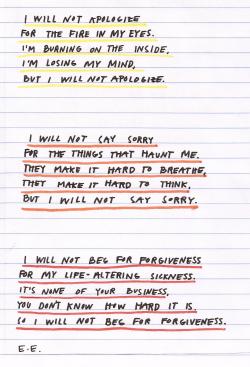 I WILL NOT APOLOGIZE
FOR THE FIRE IN MY EYES.
I'M BURNING ON THE INSIDE,
I'M LOSING MY MIND,
BUT I WILL NOT APOLOGIZE.
I WILL NOT SAY SORRY
FOR THE THINGS THAT HAUNT ME.
THEY MAKE IT HARD TO BREATHE,
THEY MAKE IT HARD TO THINK,
BUT I WILL NOT SAY SORRY.
I WILL NOT BEG FOR FORGIVENESS
FOR MY LIFE-ALTERING SICKNESS.
IT'S NONE OF YOUR BUSINESS,
YOU DON'T KNOW HOW HARD IT IS,
SO I WILL NOT BEG FOR FORGIVENESS.
E.E.